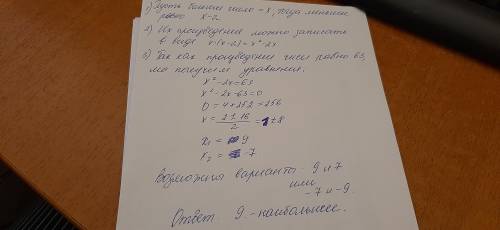 1) Пусть большее число - x, тогда меньшее
равно x-2
2) Их произведение можно записать
в виде x·(x-2)=x²-2x
3) Так как произведение чисел равно 63,
то получаем уравнения.
x²-2x=63
x²-2x-63=0
D=4+252=256
x=(2±16)/2=1±8
x₁=9
x₂=-7
Возможны варианты 9 и 7
или
-7 и -9.
Ответ 9 - наибольшее.